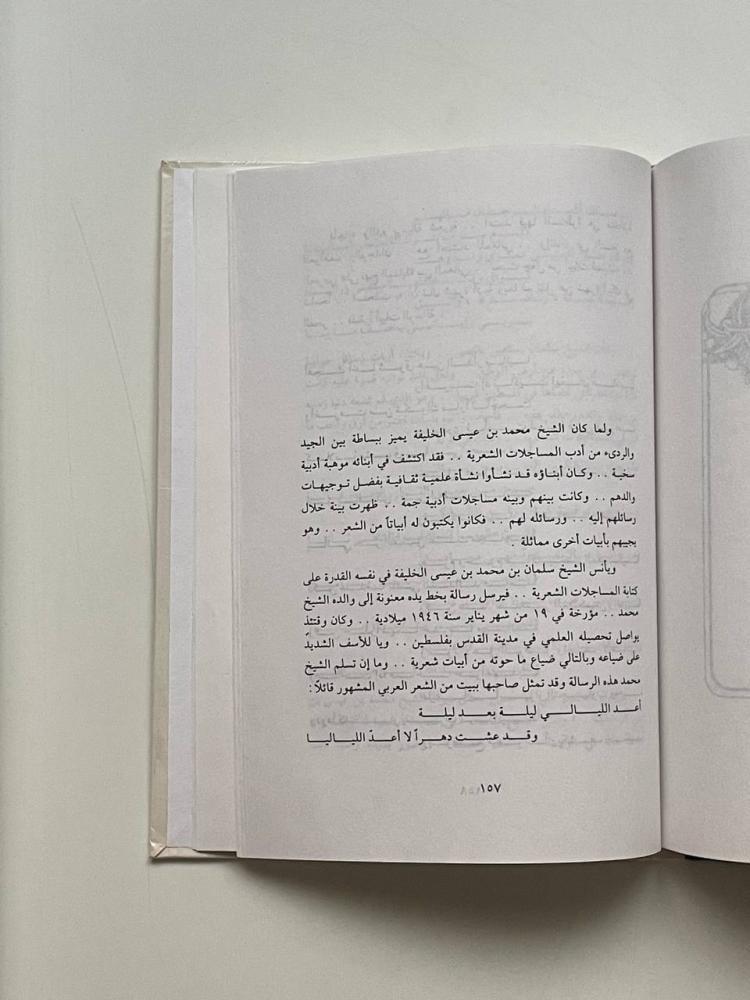 ولما كان الشيخ محمد بن عيسى الخليفة يميز ببساطة بين الجيد
والردىء من أدب المساجلات الشعرية . . فقد اكتشف في أبنائه موهبة أدبية
سخية . . وكان أبناؤه قد نشأوا نشأة علمية ثقافية بفضل توجيهات
والدهم . . وكانت بينهم وبينه مساجلات أدبية جمة . . ظهرت بينة خلال
رسائلهم إليه . . ورسائله لهم . . فكانوا يكتبون له أبياتاً من الشعر . . وهو
يجيبهم بأبيات أخرى مماثلة .
ويأنس الشيخ سلمان بن محمد بن عيسى الخليفة في نفسه القدرة على
كتابة المساجلات الشعرية . . فيرسل رسالة بخط يده معنونة إلى والده الشيخ
محمد . . مؤرخة في ١٩ من شهر يناير سنة ١٩٤٦ ميلادية . . وكان وقتئذ
يواصل تحصيله العلمي في مدينة القدس بفلسطين . . ويا للأسف الشديد
على ضياعه وبالتالي ضياع ما حوته من أبيات شعرية . . وما إن تسلم الشيخ
محمد هذه الرسالة وقد تمثل صاحبها ببيت من الشعر العربي المشهور قائلاً :
أعد الليالي ليلة بعد ليلة
وقد عشت دهراً لا أعدّ اللياليا
١٥٧